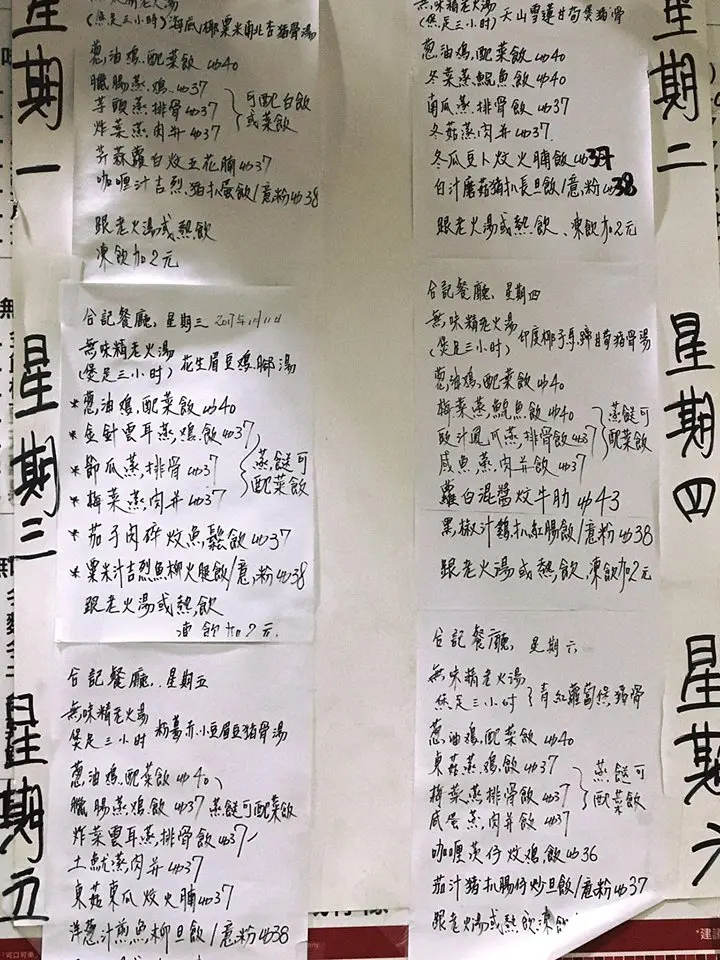 星期一
(煲足三小时) 海底椰粟米南北杏猪骨湯
葱油鸡,配菜飲 $40
臘腸蒸鸡 $37
芋頭蒸排骨 $37
炸菜蒸肉并 $37
可配白飲
或菜飲
蒜蘿白炆五花腩 $37
咖喱汁吉烈猪扒蛋飲/意粉 $38
跟老火湯或熱飲
凍飲加2元
星期二
無味精老火湯
(煲足三小时) 天山雪蓮甘筍煲猪骨
葱油鸡,配菜飲 $40
冬菜蒸鯇魚飲 $40
南瓜蒸排骨飲 $37
冬菇蒸肉并 $37
冬瓜豆卜炆火腩飲 $37
白汁磨菇猪扒長旦飲/意粉 $38
跟老火湯或熱飲、凍飲加2元
星期三
合記餐廳,星期三 2017年1月11日
無味精老火湯
(煲足三小时) 花生眉豆鸡腳湯
* 葱油鸡,配菜飲 $40
* 金針雲耳蒸鸡飲 $37
* 節瓜蒸排骨 $37
* 梅菜蒸肉并 $37
蒸餸可
配菜飲
* 茄子肉碎炆魚鬆飲 $37
* 粟米汁吉烈魚柳火腿飲/意粉 $38
跟老火湯或熱飲
凍飲加2元
星期四
合記餐廳,星期四
無味精老火湯
(煲足三小时) 印度椰子馬蹄甘荀猪骨湯
葱油鸡,配菜飲 $40
梅菜蒸鯇魚飲 $40
豉汁鳳瓜蒸排骨飲 $37
咸魚蒸肉并飲 $37
蒸餸可
配菜飲
蘿白混醬炆牛肋 $43
黑椒汁鷄扒紅腸飲/意粉 $38
跟老火湯或熱飲,凍飲加2元
星期五
合記餐廳,星期五
無味精老火湯
煲足三小时 粉葛赤小豆眉豆猪骨湯
葱油鸡,配菜飲 $40
臘腸蒸鸡飲 $37 蒸餸可配菜飲
炸菜雲耳蒸排骨飲 $37
土魷蒸肉并 $37
東菇東瓜炆火腩 $37
洋葱汁煎魚柳旦飲/意粉 $38
星期六
合記餐廳,星期六
無味精老火湯
煲足三小时 青紅蘿蔔煲猪骨
葱油鸡,配菜飲 $40
東菇蒸鸡飲 $37
梅菜蒸排骨飲 $37
咸蛋蒸肉并飲 $37
蒸餸可
配菜飲
咖喱薯仔炆鸡飲 $36
茄汁猪扒腸仔炒旦飲/意粉 $37
跟老火湯或熱飲凍飲